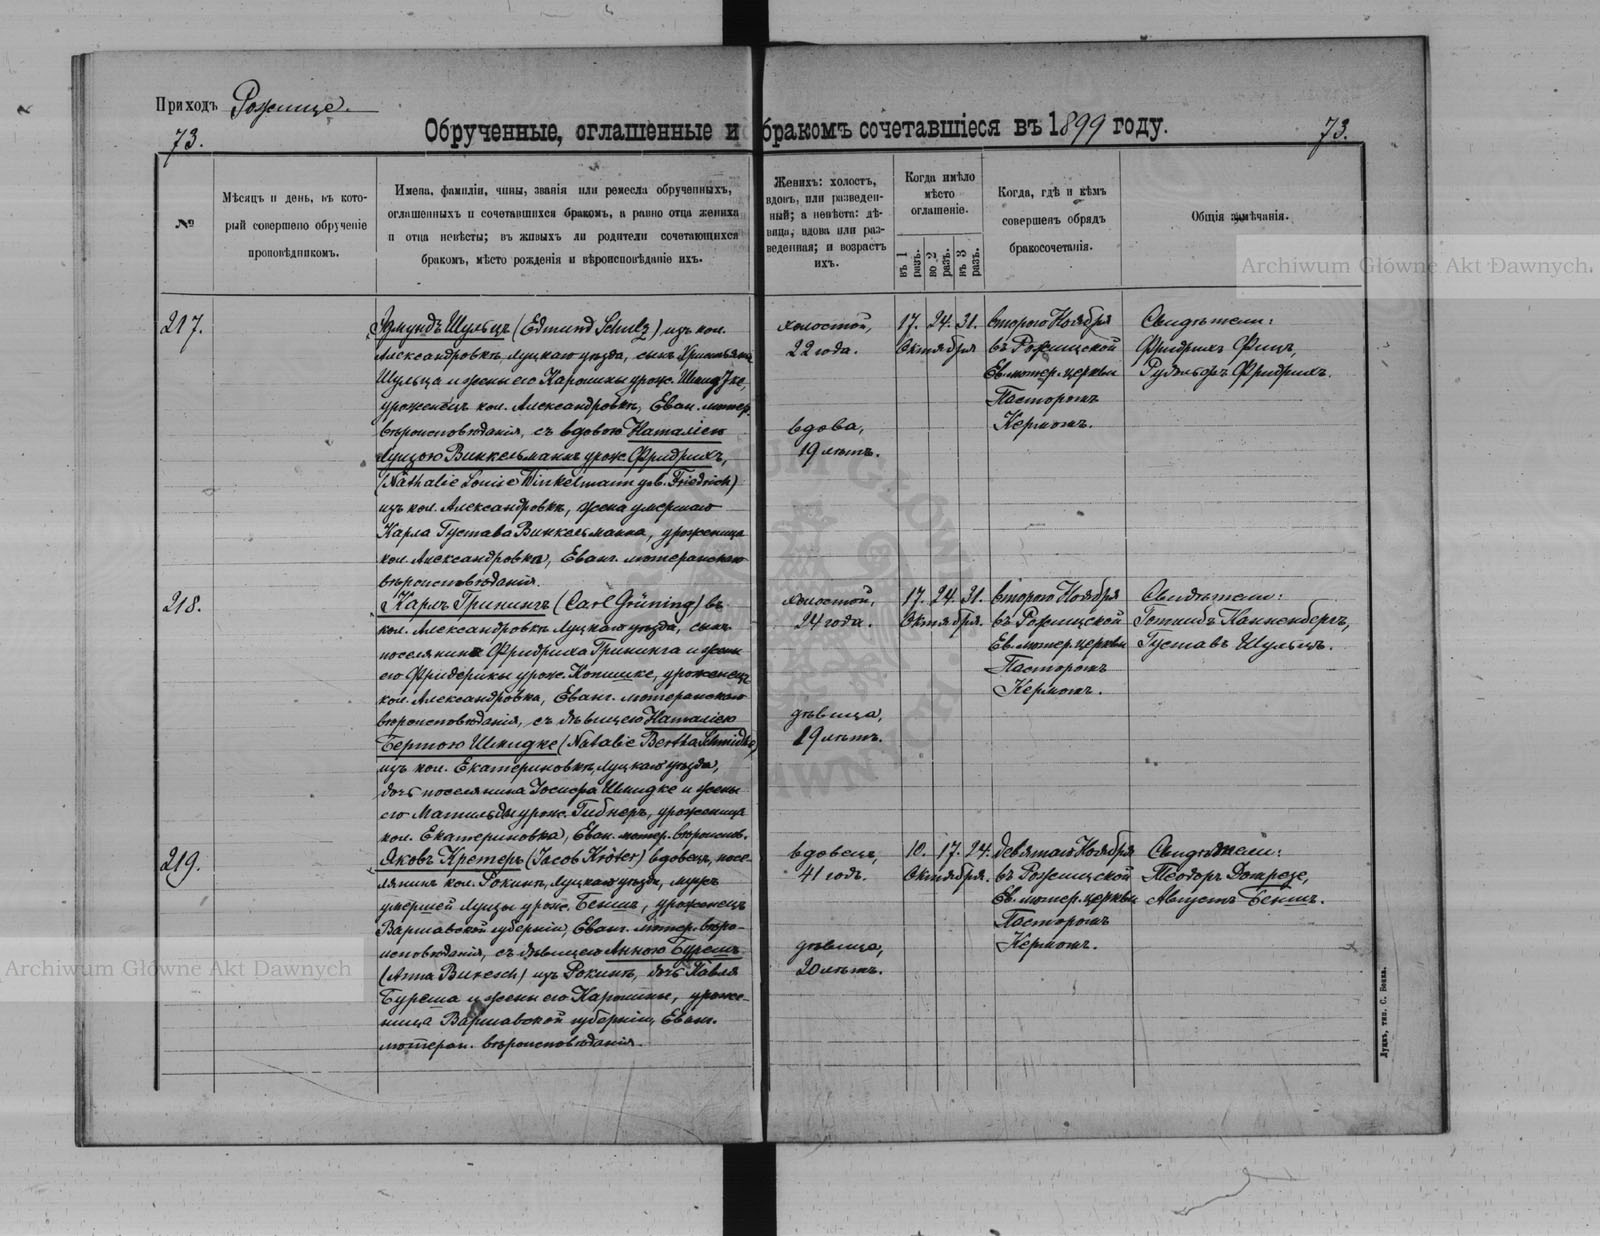 Приходъ Рожище.
73.
Обрученные, оглашенные и бракомъ сочетавшіеся въ 1899 году.
73.
№
Мѣсяцъ и день, въ кото-
рый совершено обрученіе
проповѣдникомъ.
Имена, фамиліи, чины, званія или ремесла обрученныхъ,
оглашенныхъ и сочетавшихся бракомъ, а равно отца жениха
и отца невѣсты; въ живыхъ ли родители сочетающихся
бракомъ, мѣсто рожденія и вѣроисповѣданіе ихъ.
Женихъ: холостъ,
вдовъ, или разведен-
ный; а невѣста: дѣ-
вица, вдова или раз-
веденная; и возрастъ
ихъ.
Когда имѣло
мѣсто
оглашеніе.
въ 1 разъ.
во 2 разъ.
въ 3 разъ.
Когда, гдѣ и кѣмъ
совершенъ обрядъ
бракосочетанія.
Общія замѣчанія.
217.
Эдмундъ Шульцъ (Edmund Schulz) изъ кол.
Александровкѣ, Луцкаго уѣзда, сынъ Христьяна
Шульца и жены его Каролины урож. Шмидтке
уроженецъ кол. Александровкѣ, Еван. лютер.
вѣроисповѣданія, съ вдовою Наталіею
Луизою Винкельманъ урож. Фридрихъ,
(Nathalie Louise Winkelmann geb. Friedrich)
изъ кол. Александровкѣ, жена умершаго
Карла Густава Винкельманна, уроженица
кол. Александровка, Еванг. лютеранскаго
вѣроисповѣданія.
холостой,
22 года.
вдова,
19 лѣтъ.
17. 24. 31.
Октября
Второго Ноября
въ Рожищской
Ев. лютер. церкви
Пасторомъ
Кермомъ.
Свидѣтели:
Фридрихъ Фицъ,
Рудольфъ Фридрихъ.
218.
Карлъ Грюнингъ (Carl Grüning) въ
кол. Александровкѣ Луцкаго уѣзда, сынъ
поселянина Фридриха Грининга и жены
его Фридерики урож. Копишке, уроженецъ
кол. Александровка, Еванг. лютеранскаго
вѣроисповѣданія, съ дѣвицею Наталіею
Бертою Шмидке (Natalie Bertha Schmidke)
изъ кол. Екатериновкѣ, Луцкаго уѣзда,
дочь поселянина Іосифа Шмидке и жены
его Матильды урож. Гибнеръ, уроженица
кол. Екатериновка, Еван. лютер. вѣроиспов.
холостой,
24 года.
дѣвица,
19 лѣтъ.
17. 24. 31.
Октября.
Второго Ноября
въ Рожищской
Ев. лютер. церкви
Пасторомъ
Кермомъ.
Свидѣтели:
Готлибъ Канненбергъ,
Густавъ Шульцъ.
219.
Яковъ Кретеръ (Jacob Kröter) вдовецъ, посе-
лянинъ кол. Рокинъ, Луцкаго уѣзда, мужъ
умершей Луизы урож. Беншъ, уроженецъ
Варшавской губерніи, Еванг. лютер. вѣро-
исповѣданія, съ дѣвицею Анною Бурешъ
(Anna Buresch) изъ Рокинъ, дочь Павла
Буреша и жены его Каролины, уроже-
ница Варшавской губерніи, Еванг.
лютеран. вѣроисповѣданія.
вдовецъ,
41 годъ.
дѣвица,
20 лѣтъ.
10. 17. 24.
Октября.
Девятаго Ноября
въ Рожищской
Ев. лютер. церкви
Пасторомъ
Кермомъ.
Свидѣтели:
Теодоръ
Августъ Беншъ.
Луцкъ, тип. С. Бенка.
Archiwum Główne Akt Dawnych.
Archiwum Główne Akt Dawnych